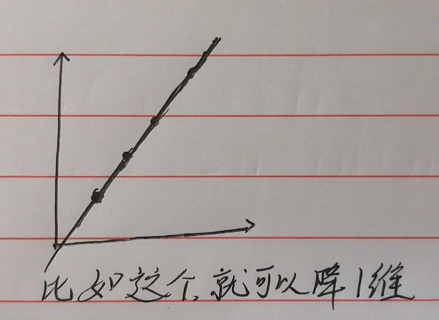 比如这个,就可以降1维